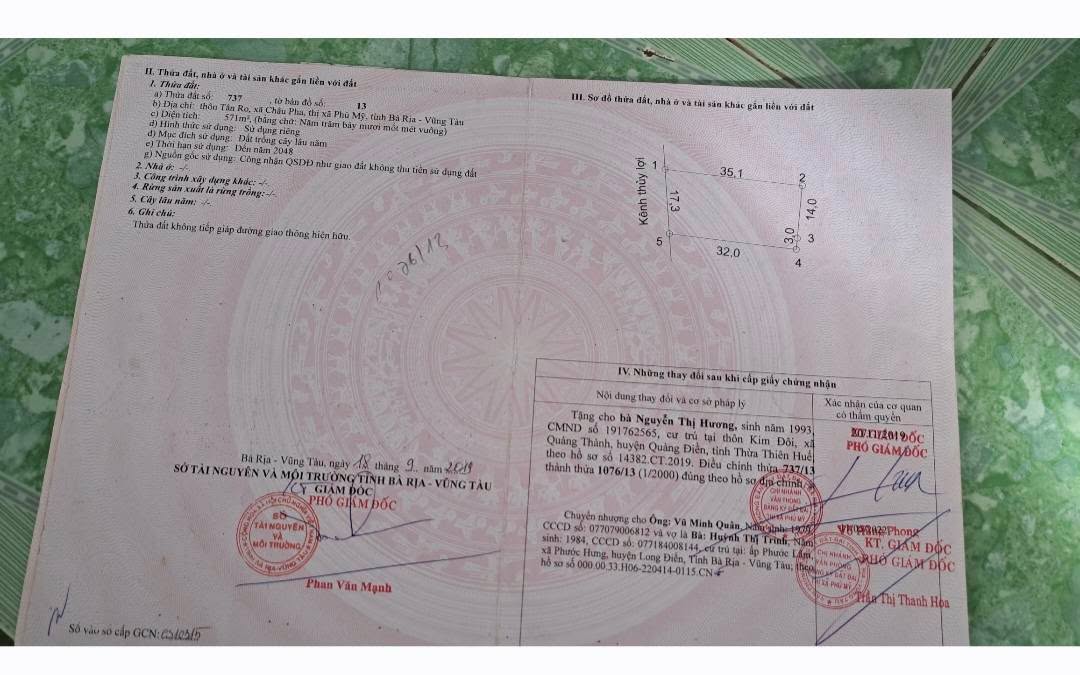 II. Thửa đất, nhà ở và tài sản khác gắn liền với đất
1. Thửa đất:
a) Thửa đất số: 737 , tờ bản đồ số: 13
b) Địa chỉ: thôn Tân Ro, xã Châu Pha, thị xã Phú Mỹ, tỉnh Bà Rịa - Vũng Tàu
c) Diện tích: 571m², (bằng chữ: Năm trăm bảy mươi mốt mét vuông)
d) Hình thức sử dụng: Sử dụng riêng
đ) Mục đích sử dụng: Đất trồng cây lâu năm
e) Thời hạn sử dụng: Đến năm 2048
g) Nguồn gốc sử dụng: Công nhận QSDĐ như giao đất không thu tiền sử dụng đất
2. Nhà ở: -/-
3. Công trình xây dựng khác: -/-
4. Rừng sản xuất là rừng trồng: -/-
5. Cây lâu năm: -/-
6. Ghi chú:
Thửa đất không tiếp giáp đường giao thông hiện hữu.
Bà Rịa - Vũng Tàu, ngày 18 tháng 9 năm 2019
SỞ TÀI NGUYÊN VÀ MÔI TRƯỜNG TỈNH BÀ RỊA - VŨNG TÀU
GIÁM ĐỐC
PHÓ GIÁM ĐỐC
SỞ
TÀI NGUYÊN
VÀ
MÔI TRƯỜNG
Phan Văn Mạnh
Số vào sổ cấp GCN:
III. Sơ đồ thửa đất, nhà ở và tài sản khác gắn liền với đất
Kênh thủy lợi
1
35,1
2
17,3
14,0
3,0
3
5
32,0
4
IV. Những thay đổi sau khi cấp giấy chứng nhận
Nội dung thay đổi và cơ sở pháp lý
Xác nhận của cơ quan
có thẩm quyền
Tặng cho bà Nguyễn Thị Hương, sinh năm 1993,
CMND số 191762565, cư trú tại thôn Kim Đôi, xã
Quảng Thành, huyện Quảng Điền, tỉnh Thừa Thiên Huế;
theo hồ sơ số 14382.CT.2019. Điều chỉnh thửa 737/13
thành thửa 1076/13 (1/2000) đúng theo hồ sơ địa chính
PHÓ GIÁM ĐỐC
CHI NHÁNH
VĂN PHÒNG
ĐĂNG KÝ ĐẤT ĐAI
THỊ XÃ PHÚ MỸ
Chuyển nhượng cho Ông: Vũ Minh Quân, Năm sinh:
CCCD số: 077079006812 và vợ là Bà: Huỳnh Thị Trinh, Năm
sinh: 1984, CCCD số: 077184008144, cư trú tại: ấp Phước Lâm,
xã Phước Hưng, huyện Long Điền, Tỉnh Bà Rịa - Vũng Tàu; theo
hồ sơ số 000.00.33.H06-220414-0115.CN
Phong
KT. GIÁM ĐỐC
PHÓ GIÁM ĐỐC
CHI NHÁNH
VĂN PHÒNG
ĐĂNG KÝ ĐẤT ĐAI
THỊ XÃ PHÚ MỸ
Trần Thị Thanh Hòa